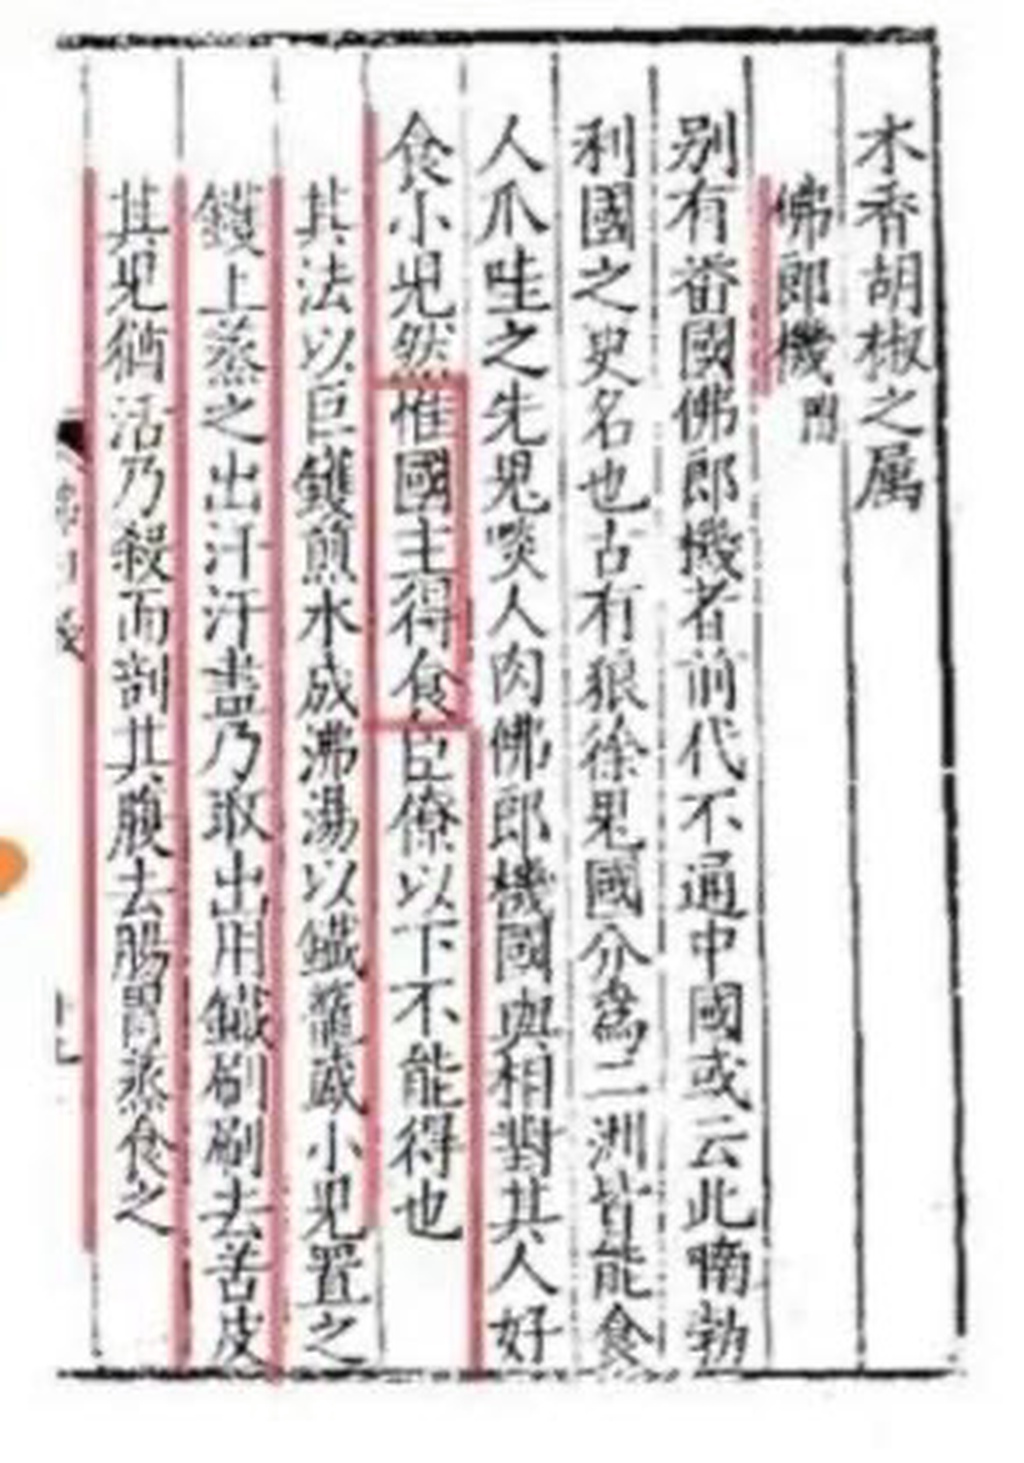 木香胡椒之属
佛郎機附
别有番國佛郎機者前代不通中國或云此喃勃
利國之史名也古有狼徐鬼國分為二洲皆能食
人爪哇之先鬼啖人肉佛郎機國與相對其人好
食小児然惟國主得食臣僚以下不能得也
其法以巨鑊煎水成沸湯以鐵籠盛小児置之
鑊上蒸之出汗汗盡乃取出用鐵刷刷去苦皮
其児猶活乃殺而剖其腹去腸胃蒸食之